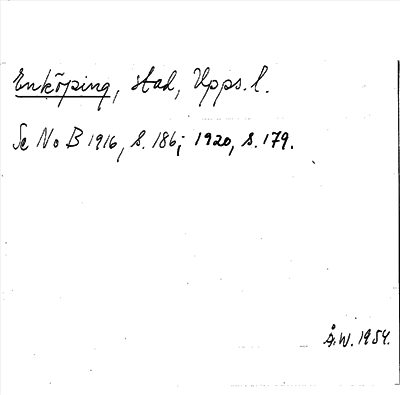 Enköping, stad, Upps. l.
Se No B 1916, s. 186; 1920, s. 179.
Å.W. 1954.